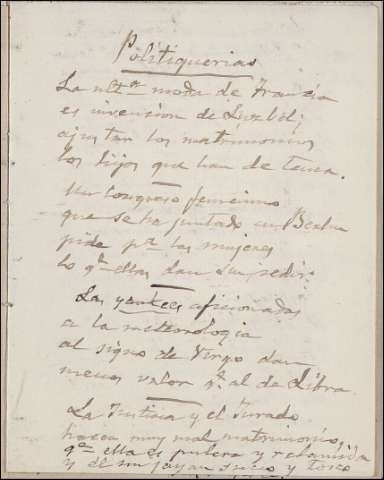 Politiquerias
La ultª moda de Francia
es invencion de Luzbel;
ajustan los matrimonios
los hijos que han de tener.
Un congreso femenino
que se ha juntado en Berlin
pide pª las mujeres
lo qº ellas dan sin pedir.
Las yankees aficionadas
a la meteorologia
al signo de Virgo dan
menos valor qº al de Libra.
La Justicia y el Jurado
hacen muy mal matrimonio,
qº ella es pulcra y
y él un jayan sucio y tosco